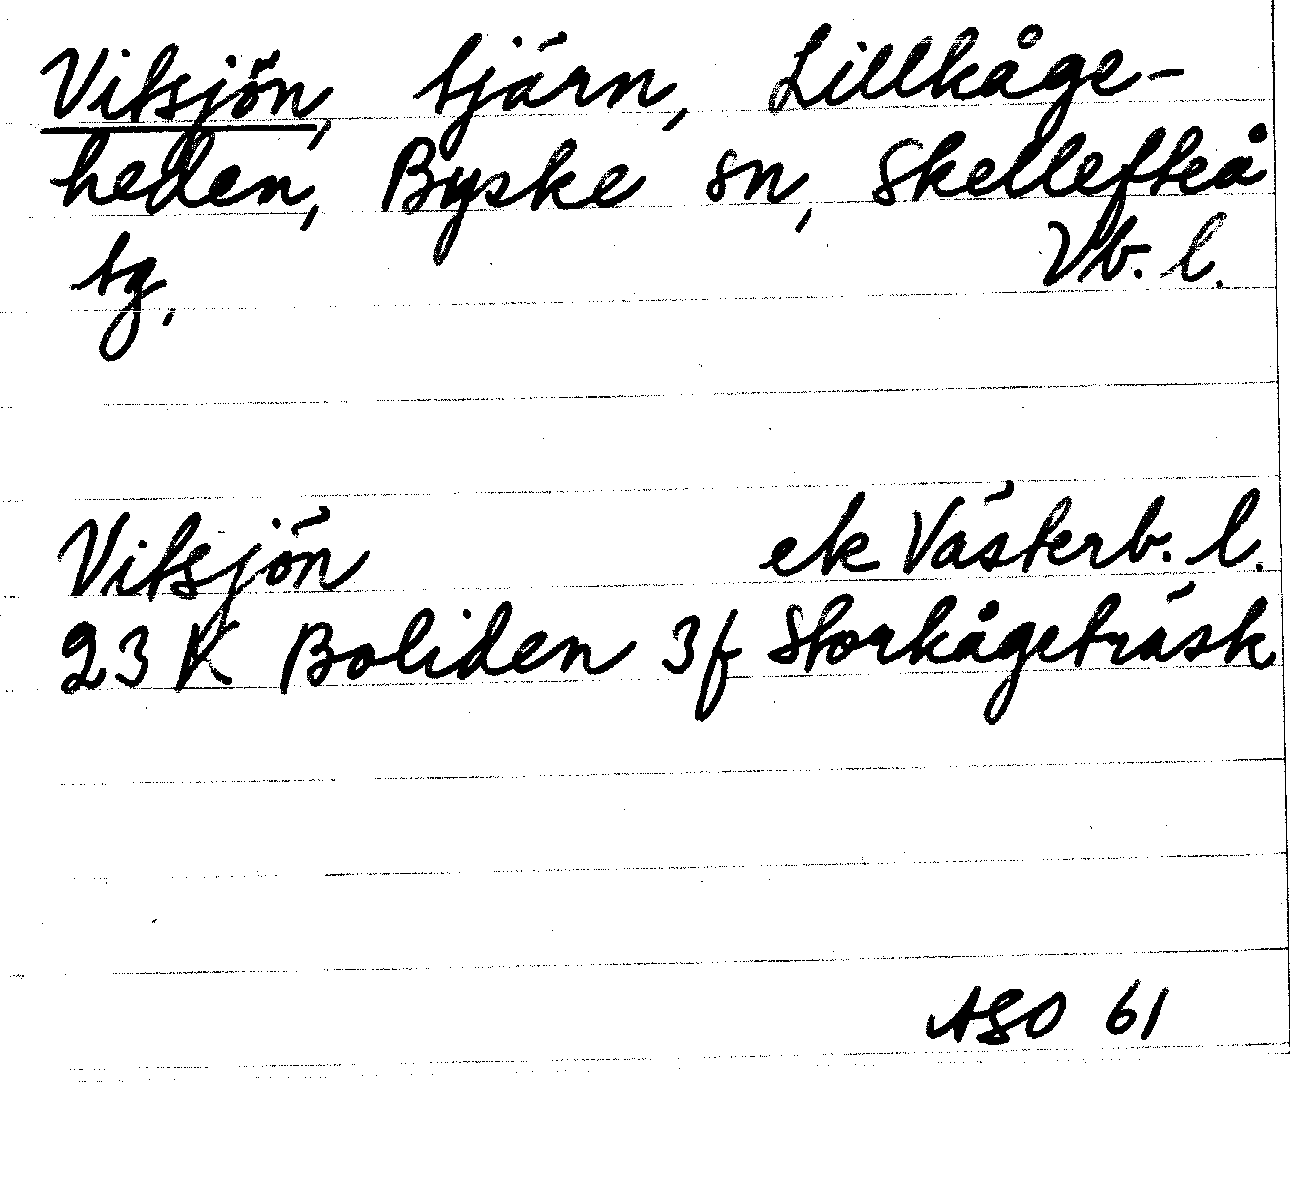 Vitsjön, tjärn, Lillkåge-
heden, Byske sn, Skellefteå
tg. Vb. l.
Vitsjön ek Västerb. l.
23 K Boliden 3f Storkågeträsk
ASO 61